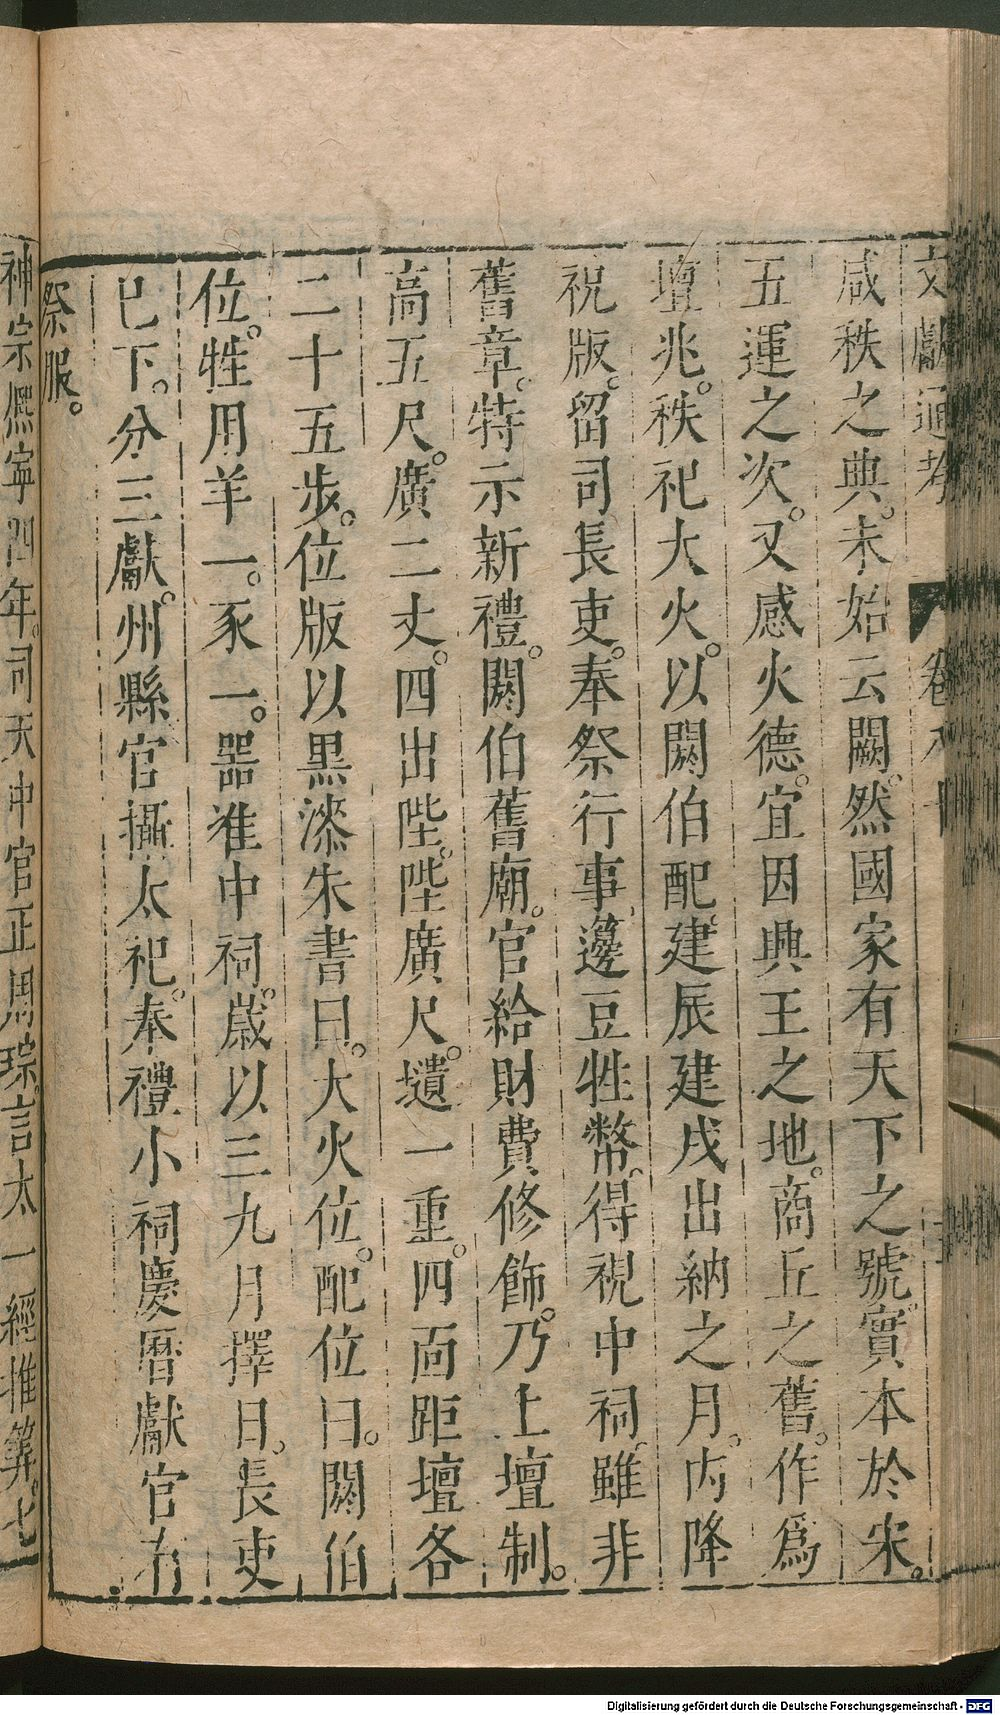 文獻通考　卷八十
咸秩之典。未始云闕。然國家有天下之號。實本於宋。
五運之次。又感火德。宜因興王之地。商丘之舊。作爲
壇兆。秩祀大火。以閼伯配。建辰建戌出納之月。內降
祝版。留司長吏。奉祭行事。籩豆牲幣。得視中祠。雖非
舊章。特示新禮。閼伯舊廟。官給財費修飾。乃上壇制。
高五尺。廣二丈。四出陛。陛廣五尺。壝一重。四面距壇各
二十五步。位版以黑漆朱書曰。大火位。配位曰。閼伯
位。牲用羊一。豕一。器准中祠。歲以三九月擇日。長吏
巳下。分三獻。州縣官攝太祀。奉禮小祠慶曆獻官有
祭服。
神宗熙寧四年。司天中官正周琮言太一經推筭。七
Digitalisierung gefördert durch die Deutsche Forschungsgemeinschaft - DFG